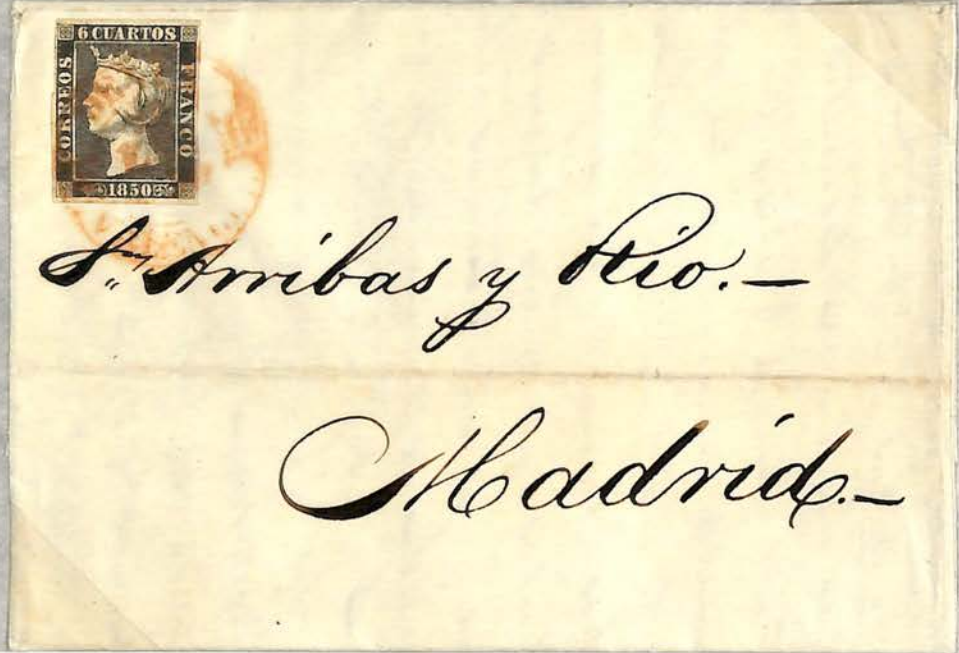 6 CUARTOS
CORREOS
FRANCO
1850
Sres Arribas y Rio.—
Madrid.—